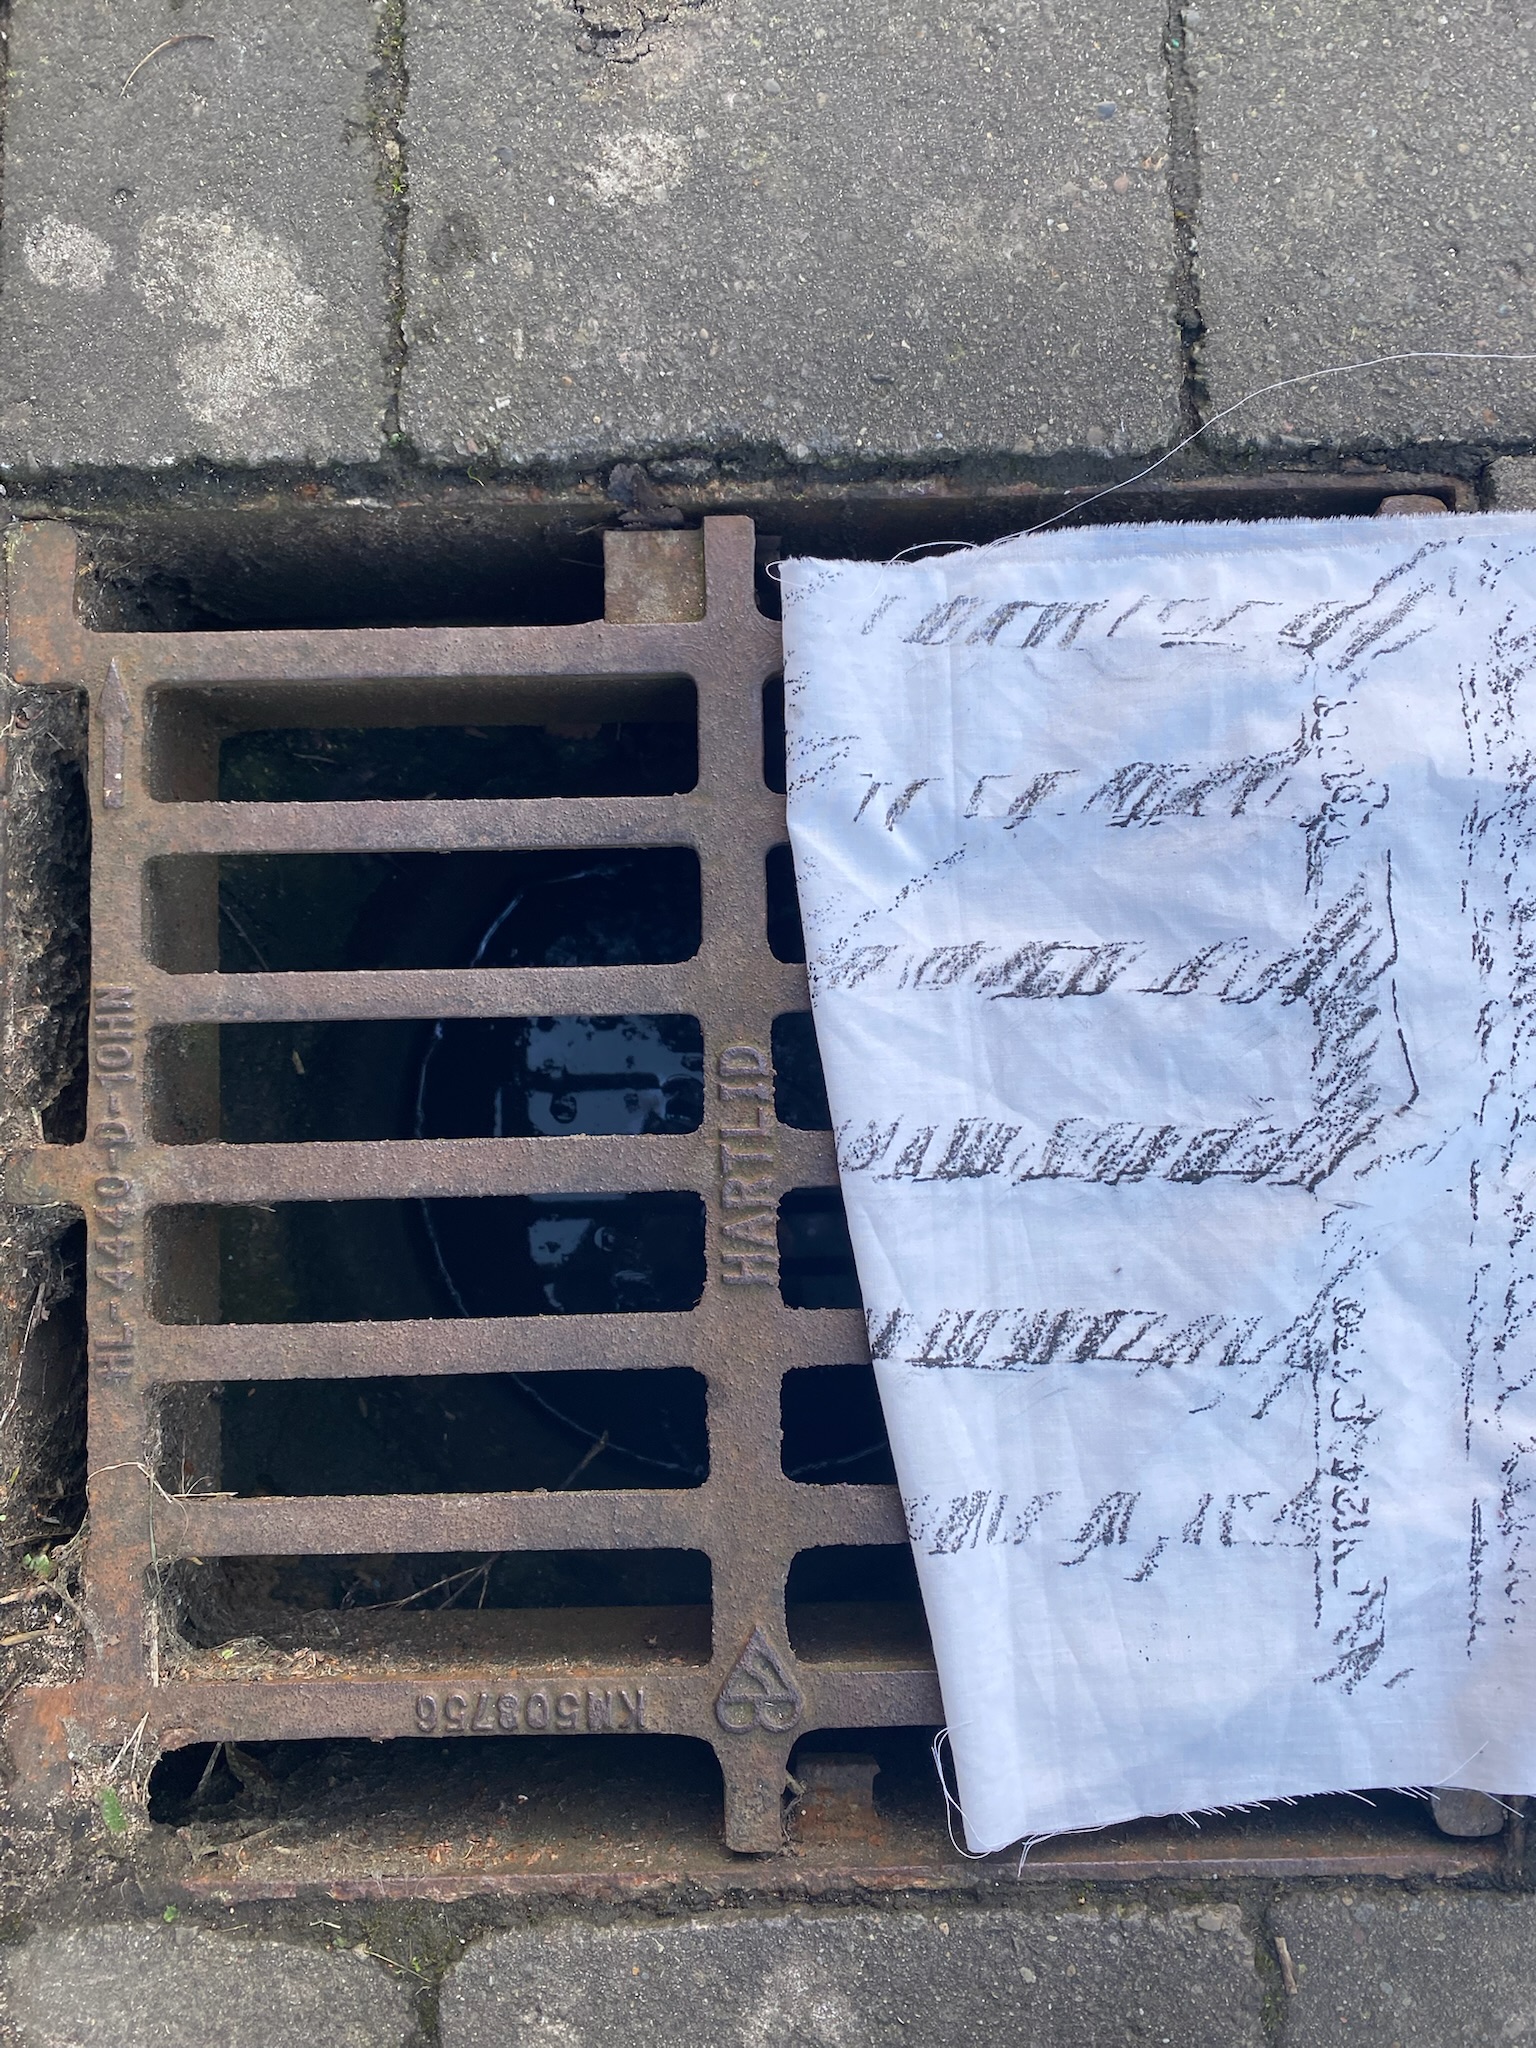 HL-4440-D-10HN
HARTLID
KM503756